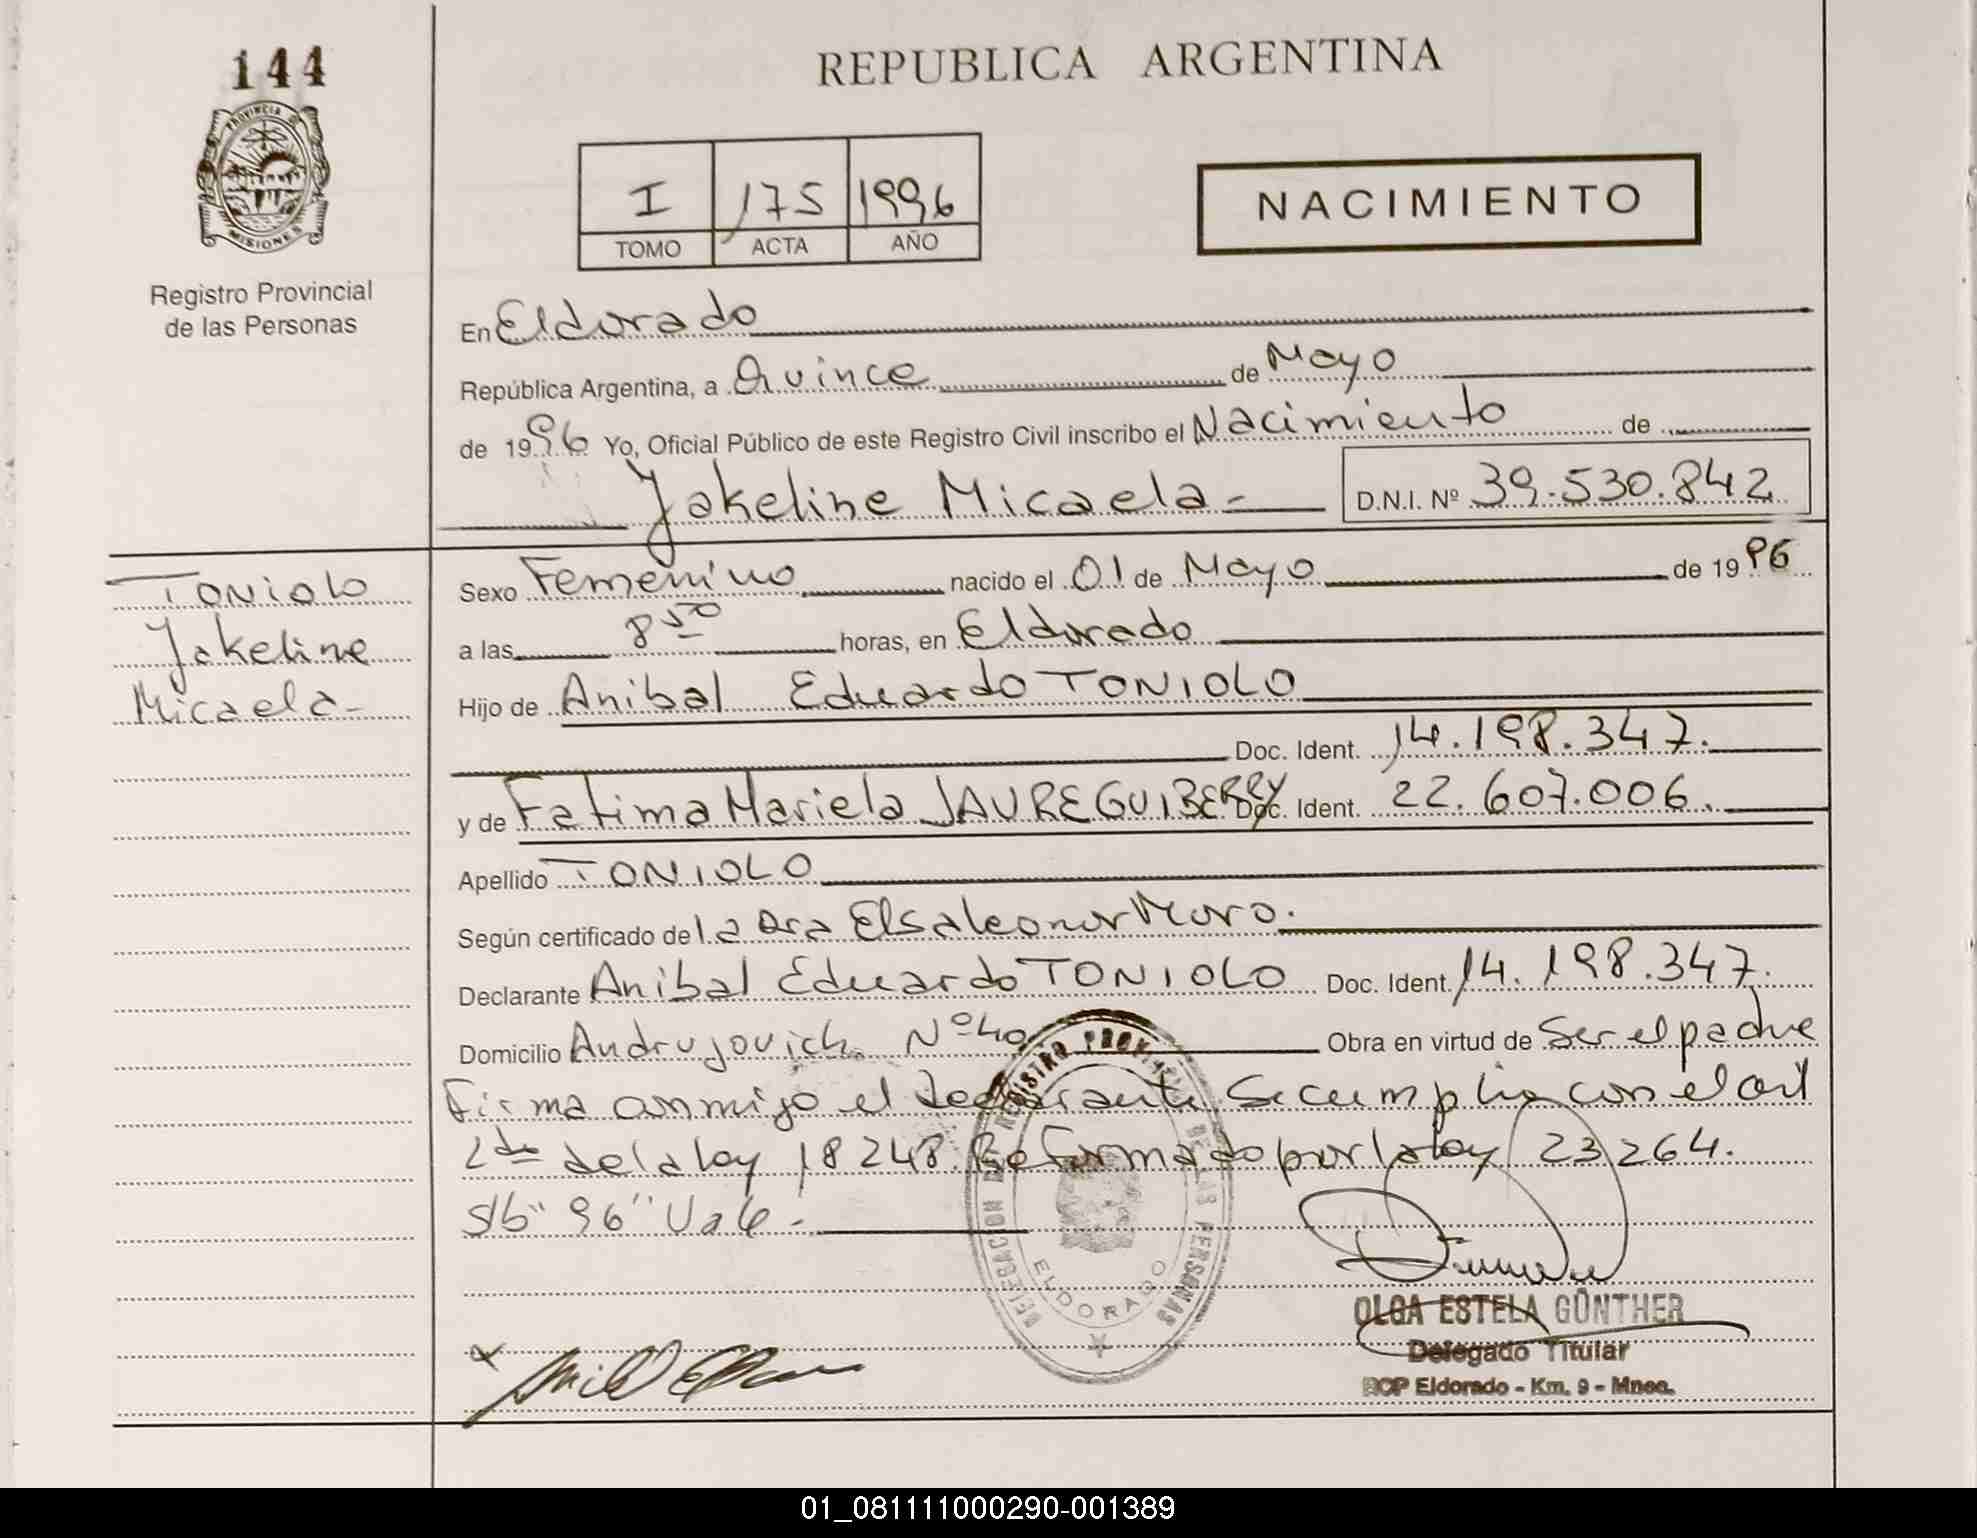 144
REPUBLICA ARGENTINA
PROVINCIA DE
MISIONES
Registro Provincial
de las Personas
I 175 1996
TOMO ACTA AÑO
NACIMIENTO
En Eldorado
República Argentina, a Quince de Mayo
de 1996 Yo, Oficial Público de este Registro Civil inscribo el Nacimiento de
Jakeline Micaela - D.N.I. Nº 39.530.842
TONIOLO
Jakeline
Micaela -
Sexo Femenino nacido el 01 de Mayo de 1996
a las 8 50 horas, en Eldorado
Hijo de Anibal Eduardo TONIOLO
Doc. Ident. 14.198.347.
y de Fatima Mariela JAUREGUIBERRY Doc. Ident. 22.607.006.
Apellido TONIOLO
Según certificado de la Dra Elsa Leonor Moro.
Declarante Anibal Eduardo TONIOLO Doc. Ident. 14.198.347.
Domicilio Andrujovich Nº 40 Obra en virtud de Ser el padre
Firma conmigo el declarante. Se cumplio con el art
2do de la ley 18248. Reformado por la ley 23264.
S/b "96" Vale -
REGISTRO PROVINCIAL DE LAS PERSONAS
DELEGACION
ELDORADO
OLGA ESTELA GÜNTHER
Delegado Titular
RCP Eldorado - Km. 9 - Mnes.
01_081111000290-001389